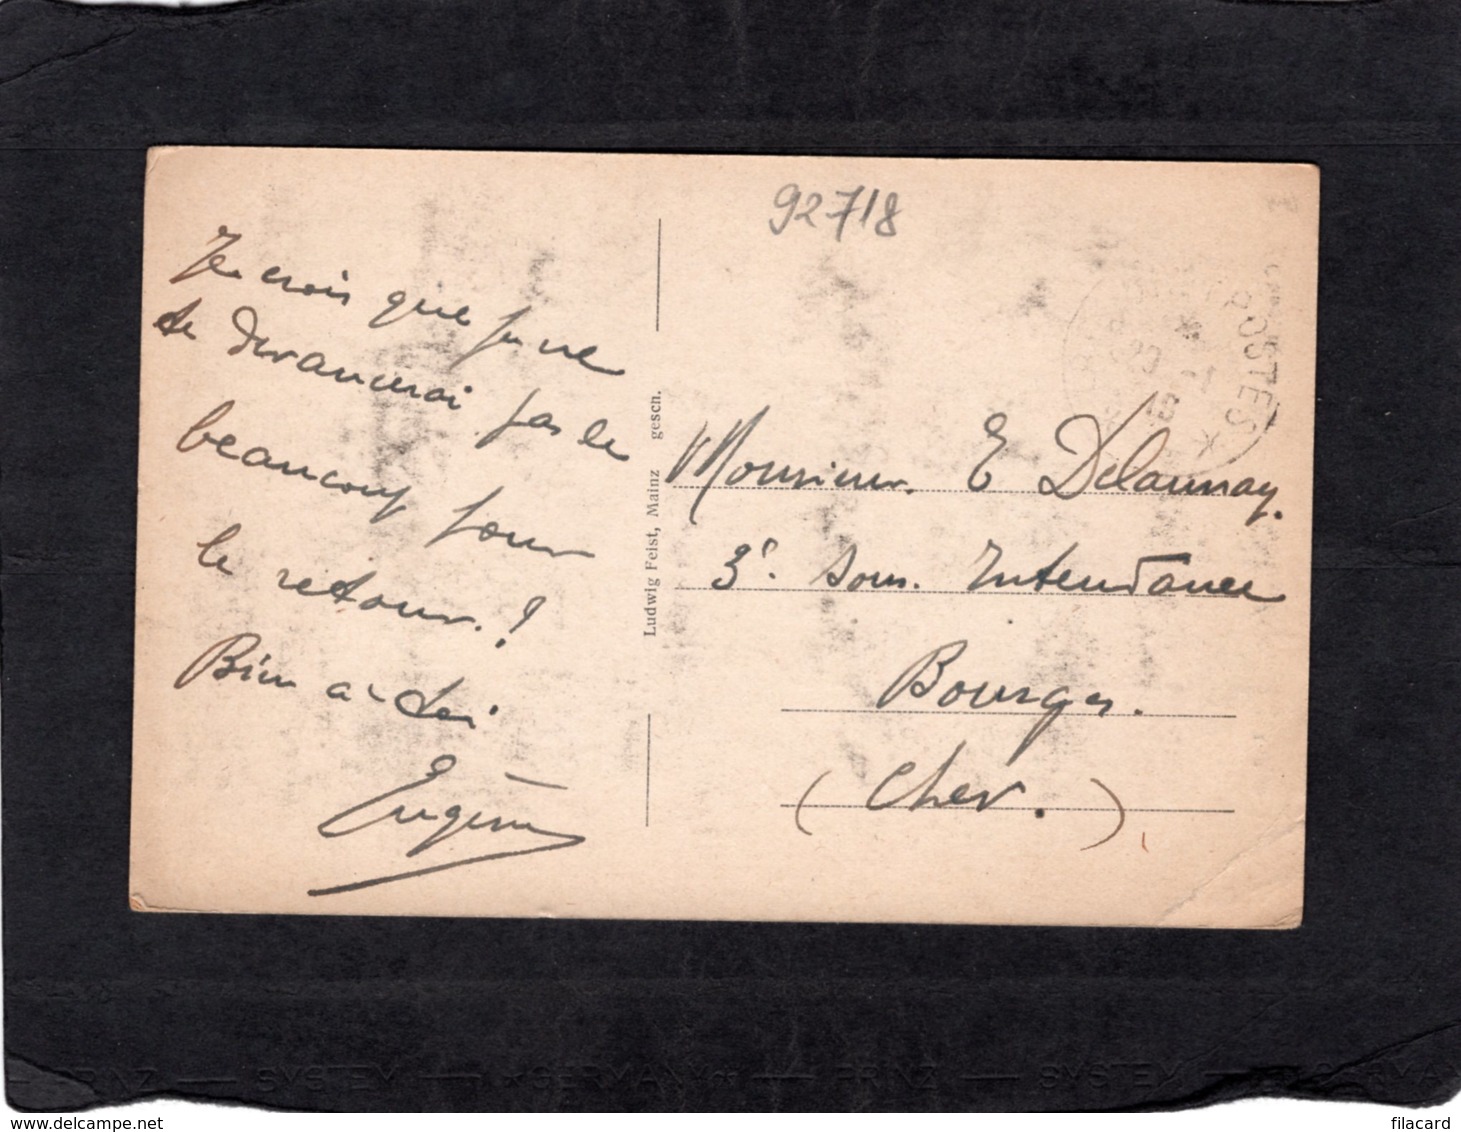 92718
Je crois que je ne
te devancerai pas de
beaucoup pour
le retour. !
Bien à toi
Eugène
Ludwig Feist, Mainz gesch.
POSTES
Monsieur. E Delaunay.
3e. Sous. Intendance
Bourges.
(Cher.)
PRINZ — SYSTEM — *GERMANY* — PRINZ — SYSTEM — *GERMA
filacard